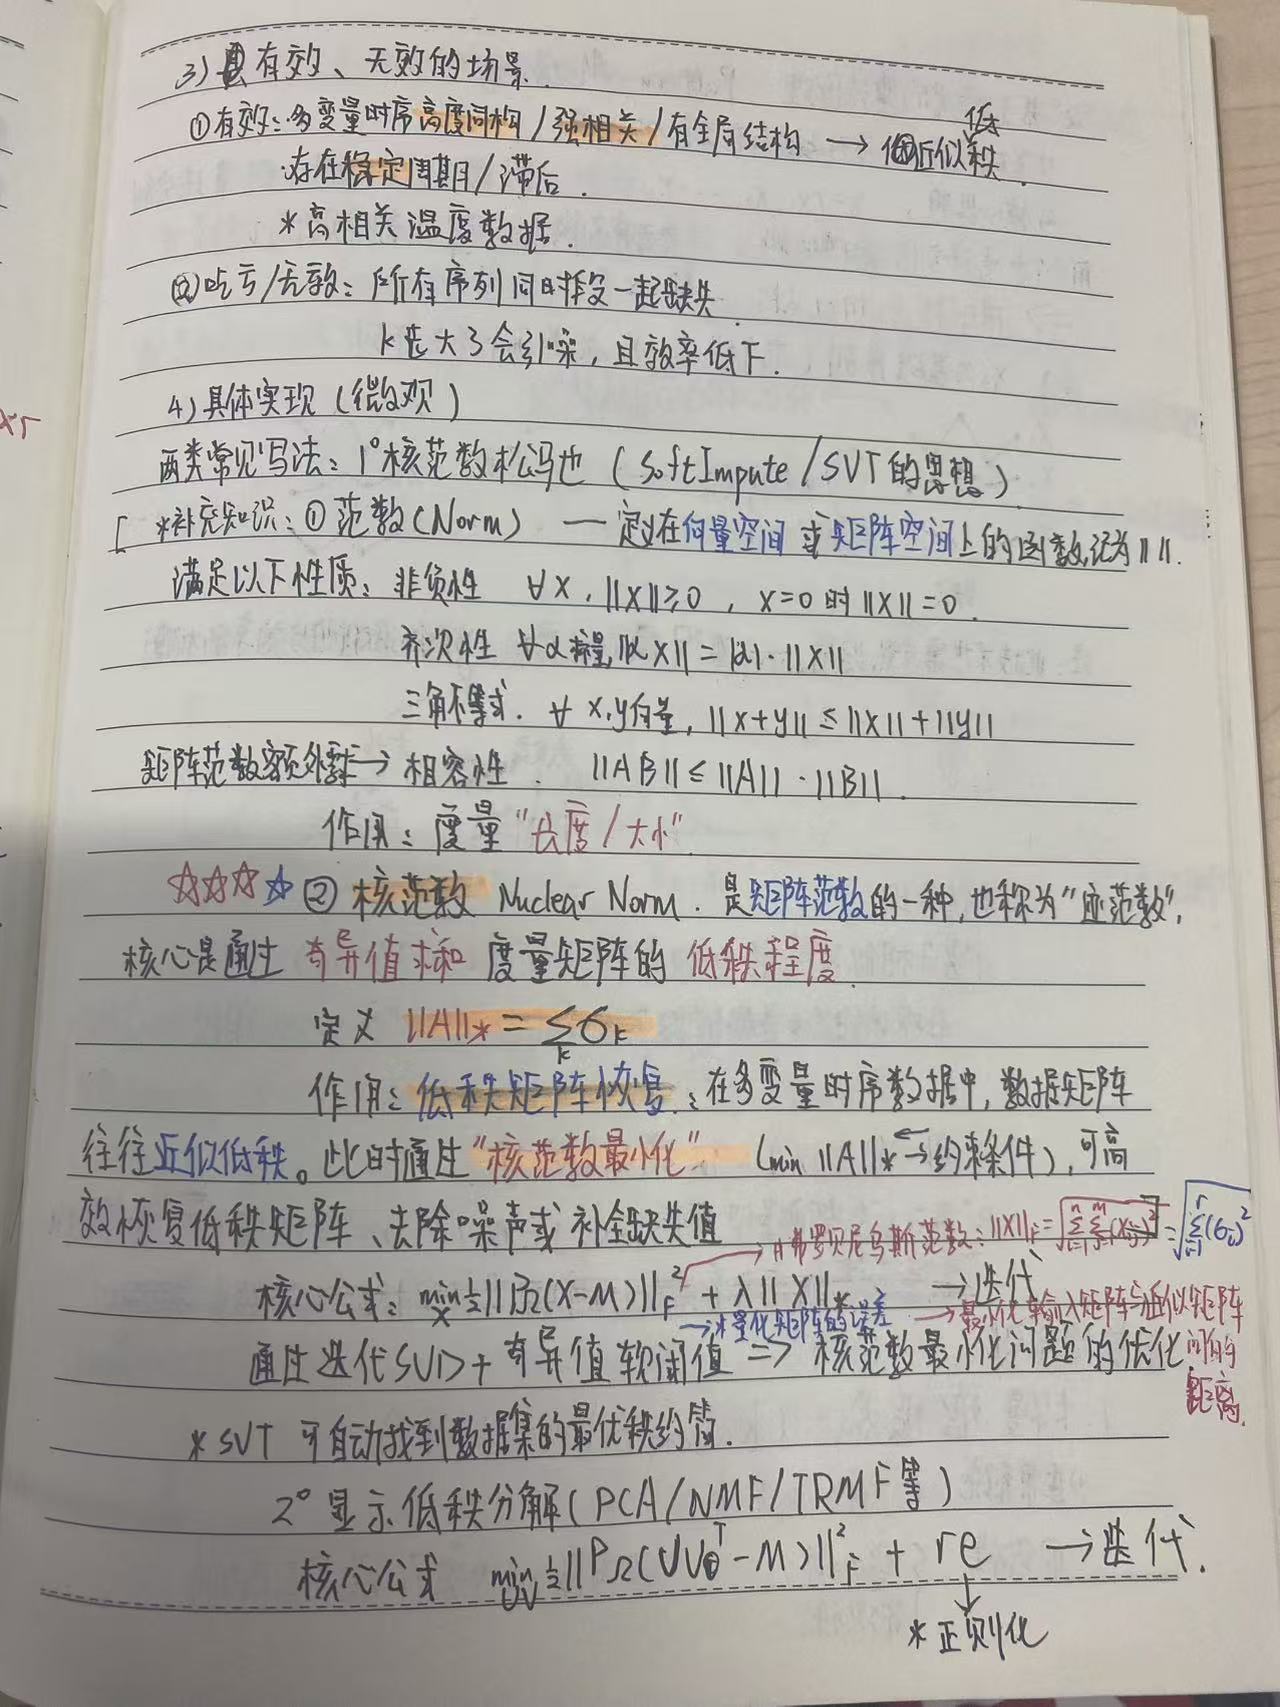 3) 有效、无效的场景.
①有效:多变量时序高度同构/强相关/有全局结构 → 近似低秩.
存在稳定周期/滞后.
*高相关温度数据.
②吃亏/无效:所有序列同时段一起缺失.
k选大了会引噪,且效率低下.
4)具体实现(微观)
两类常见写法:1°核范数松弛 (SoftImpute/SVT的思想)
[ *补充知识:①范数(Norm) — 定义在向量空间或矩阵空间上的函数,记为 || ||.
满足以下性质:非负性 ∀x, ||x||≥0, x=0时||x||=0.
齐次性 ∀α标量,||αx||=|α|·||x||
三角不等式. ∀x,y向量, ||x+y||≤||x||+||y||
矩阵范数额外要求→相容性. ||AB||≤||A||·||B||.
作用:度量“长度/大小”
☆☆☆☆②核范数 Nuclear Norm. 是矩阵范数的一种,也称为“迹范数”,
核心是通过奇异值求和度量矩阵的低秩程度.
定义 ||A||* = Σ_k σ_k
作用:低秩矩阵恢复:在多变量时序数据中,数据矩阵
往往近似低秩。此时通过“核范数最小化” (min ||A||* ⇆约束条件),可高
效恢复低秩矩阵、去除噪声或补全缺失值
→弗罗贝尼乌斯范数:||X||_F=√(Σ_{i=1}^n Σ_{j=1}^m (x_ij)^2)=√(Σ_{i=1}^r (σ_i)^2)
核心公式:min_X ½||P_Ω(X-M)||_F^2 + λ||X||* →迭代
→*量化矩阵的误差 →最小化输入矩阵与近似矩阵
间的
距离.
通过迭代SVD+奇异值软阈值 => 核范数最小化问题的优化
*SVT 可自动找到数据集的最优秩约简.
2°显示低秩分解(PCA/NMF/TRMF等)
核心公式 min_{U,V} ½||P_Ω(UV^T-M)||_F^2 + re →迭代.
↓
*正则化